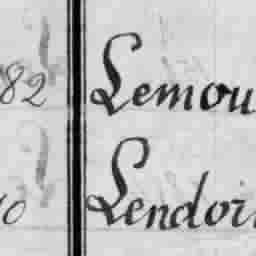 82 Lemou
10 Lendoi